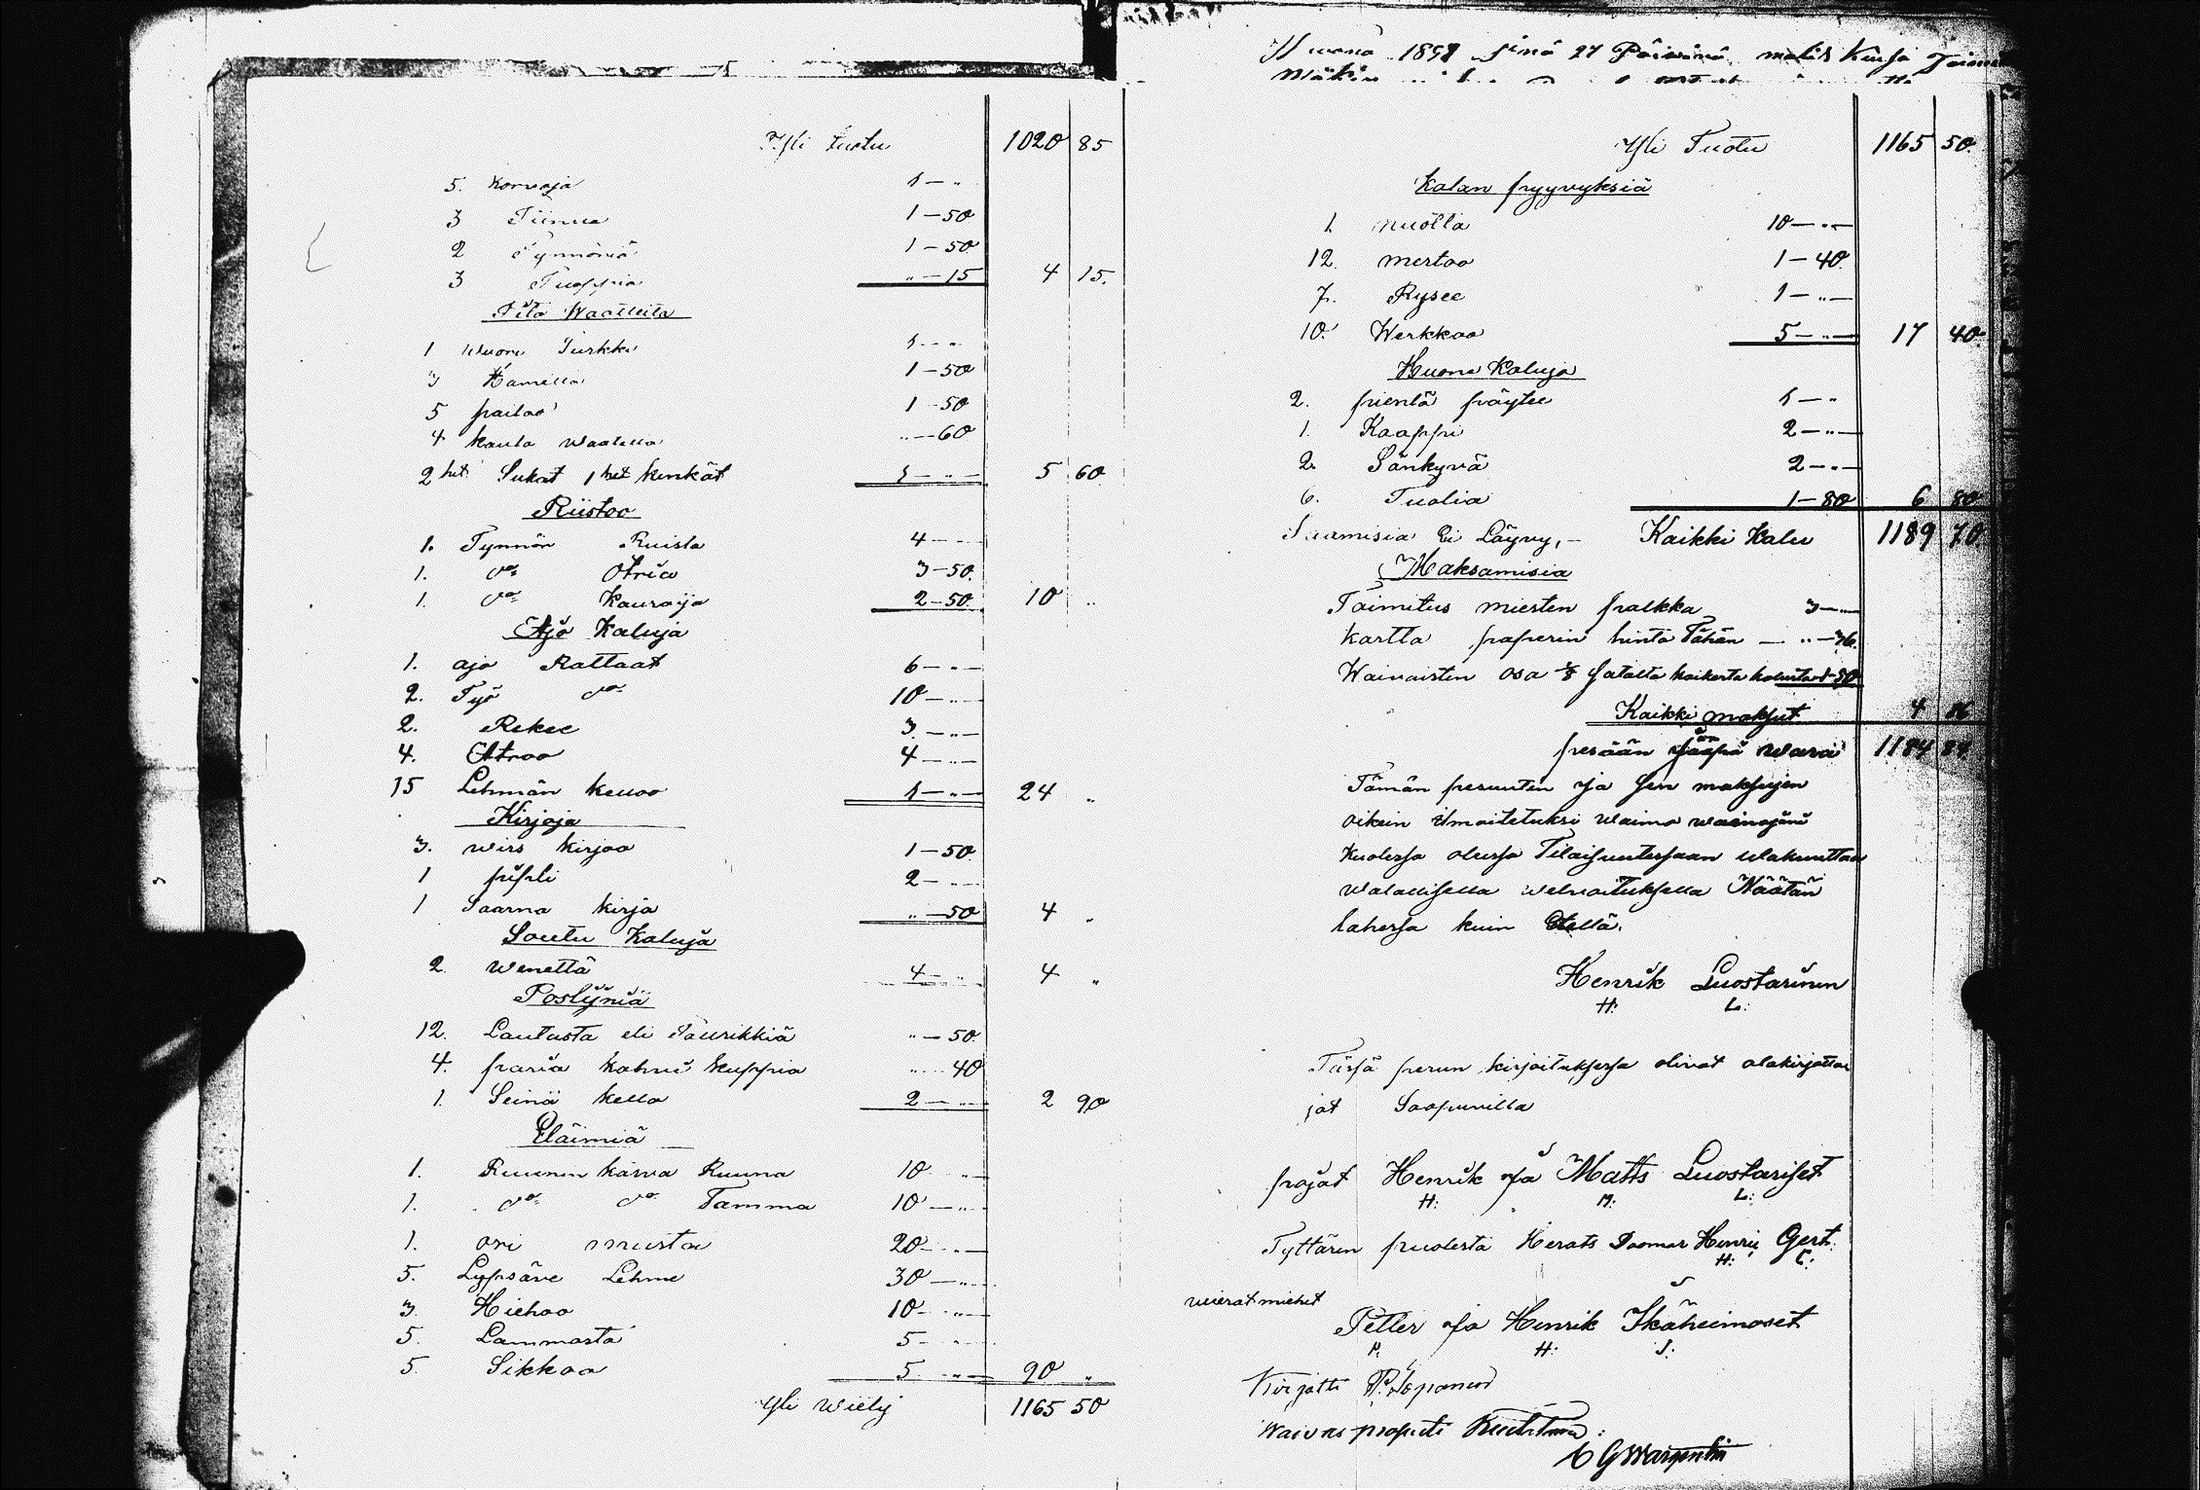 Yli tuotu 1020 85
5. Korvoja 1 — „
3 Tiinua 1 — 50
2 Tynnöriä 1 — 50
3 Tuoppia „ — 15 4 15.
Pito Waatteita
1 Wuori Turkki 1 - - „
3 Hamella 1 — 50
5 paitaa 1 - 50
4 kaula waatetta „ — 60
2 het Sukat 1 het Kenkät 1 — „ — 5 60
Riistoo
1. Tynnön Ruista 4 — „ —
1. do Otria 3 — 50.
1. do Kauroija 2 — 50 10 „
Ajo Kaluja
1. ajo Rattaat 6 — „ —
2. Työ do 10 — „ —
2. Rekee 3 — „ —
4. Atroo 4 — „ —
15 Lehmän kelloo 1 — „ — 24 „
Kirjoja
3. wirs kirjoo 1 — 50
1 pipli 2 — „ —
1 Saarna kirja „ — 50 4 „
Soutu Kaluja
2 Wenettä 4 — „ 4 „
Poslyniä
12. Lautasta eli Taurikkiä „ — 50.
4. paria kahvi kuppia „ — 40
1. Seinä kello 2 — „ — 2 90
Eläimiä
1. Ruunin karva Ruuna 10 „ —
1. do do Tamma 10 — „ —
1. ori musta 20 — „ —
5. Lypsäve Lehme 30 — „ —
3. Hiehoo 10 — „ —
5. Lammasta 5 — „
5 Sikkoa 5 „ — 90 „
Yli Wiety 1165 50
Wuona 1858 sinä 27 Päivänä
Yli Tuotu 1165 50.
Kalan pyyvyksiä
1. nuotta 10 — „ —
12. mertoo 1 — 40.
7. Rysee 1 — „ —
10. Werkkoo 5 — „ — 17 40.
Huone Kaluja
2. pientä pöytee 1 — „
1. Kaappi 2 — „ —
2. Sänkyvä 2 — „ —
6. Tuolia 1 — 80 6 80
Saamisia Ei Löyvy, — Kaikki Kalu 1189 70.
Maksamisia
Toimitus miesten palkka 3 — „ —
kartta paperin hinta Tähän — „ — 36.
Waivaisten osa 1/8 satalta kaikesta kalusta 1 - 50
Kaikki maksut 4 86
pesään jääpi wara 1184 84.
Tämän pesuuten ja sen maksujen
oikein ilmoitetuksi waimo wainajani
kuolessa olessa Tilaisuutessaan wakuuttaa
walallisella welvoituksella Näätän
lahessa kuin Etellä.
Henrik Luostarinen
H: L:
Tässä perun kirjoituksessa olivat alakirjottaa
jat Saapuvilla
pojat Henrik ja Matts Luostariset
H: M: L:
Tyttären puolesta Herats Doomar Henric Gert.
H: C:
vierat miehet
Petter ja Henrik Ikäheimoset
P: H: I:
Kirjotti
Waivas